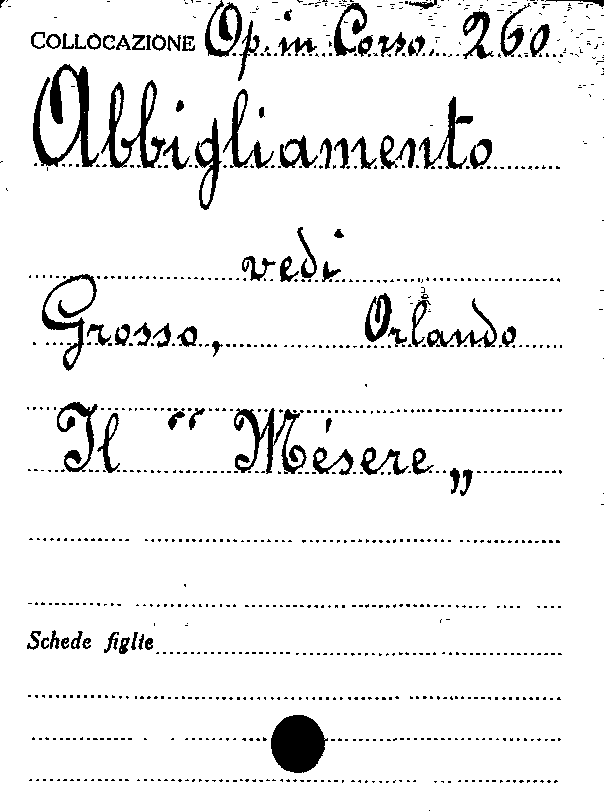 COLLOCAZIONE Op. in Corso. 260
Abbigliamento
vedi
Grosso, Orlando
Il “Mésere„
Schede figlie